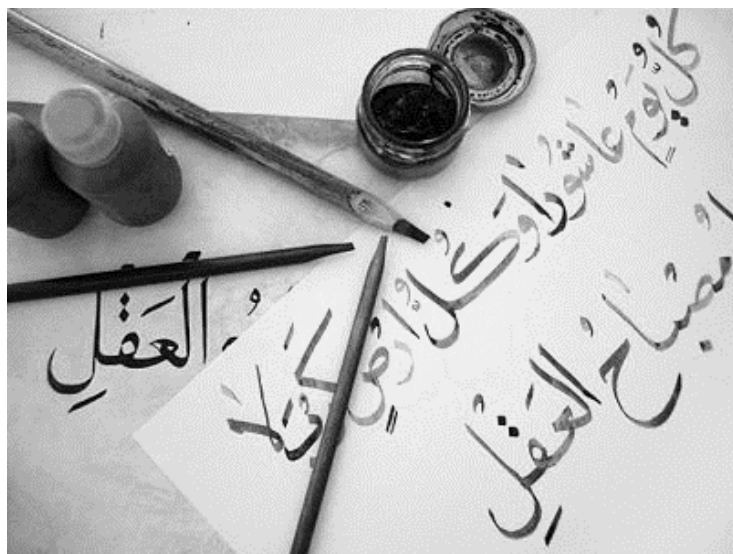 كُلُّ يَوْمٍ عَاشُورَا وَكُلُّ اَرْضٍ كَرْبَلَا
مصْبَاحُ العَقْلِ
العَقْلِ